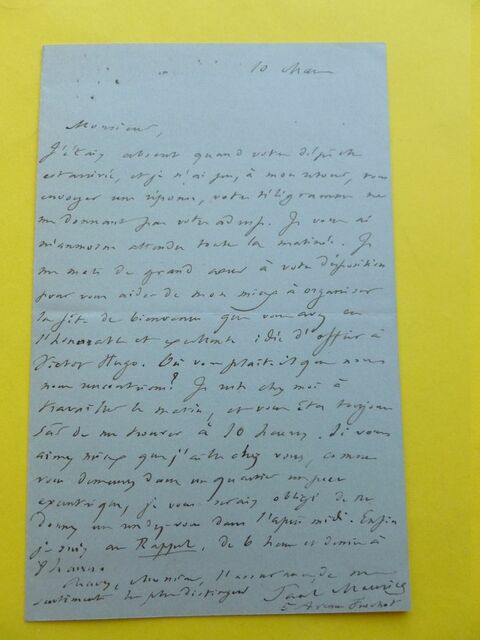 10 Mars
Monsieur,
J'étais absent quand votre dépêche
est arrivée, et je n'ai pu, à mon retour, vous
envoyer une réponse, votre télégramme ne
me donnant pas votre adresse. Je vous ai
néanmoins attendu toute la matinée. Je
me mets de grand cœur à votre disposition
pour vous aider de mon mieux à organiser
la fête de bienvenue que vous avez eu
l'honorable et excellente idée d'offrir à
Victor Hugo. Où vous plaît-il que nous
nous rencontrions? Je reste chez moi à
travailler le matin, et vous êtes toujours
sûr de me trouver à 10 heures. Si vous
aimez mieux que j'aille chez vous, comme
vous demeurez dans un quartier un peu
excentrique, je vous serais obligé de me
donner un rendez-vous dans l'après midi. Enfin
je suis au Rappel, de 6 heures et demie à
8 heures.
Monsieur, l'assurance de mes
sentiments les plus distingués
Paul Meurice
5 Avenue Frochot